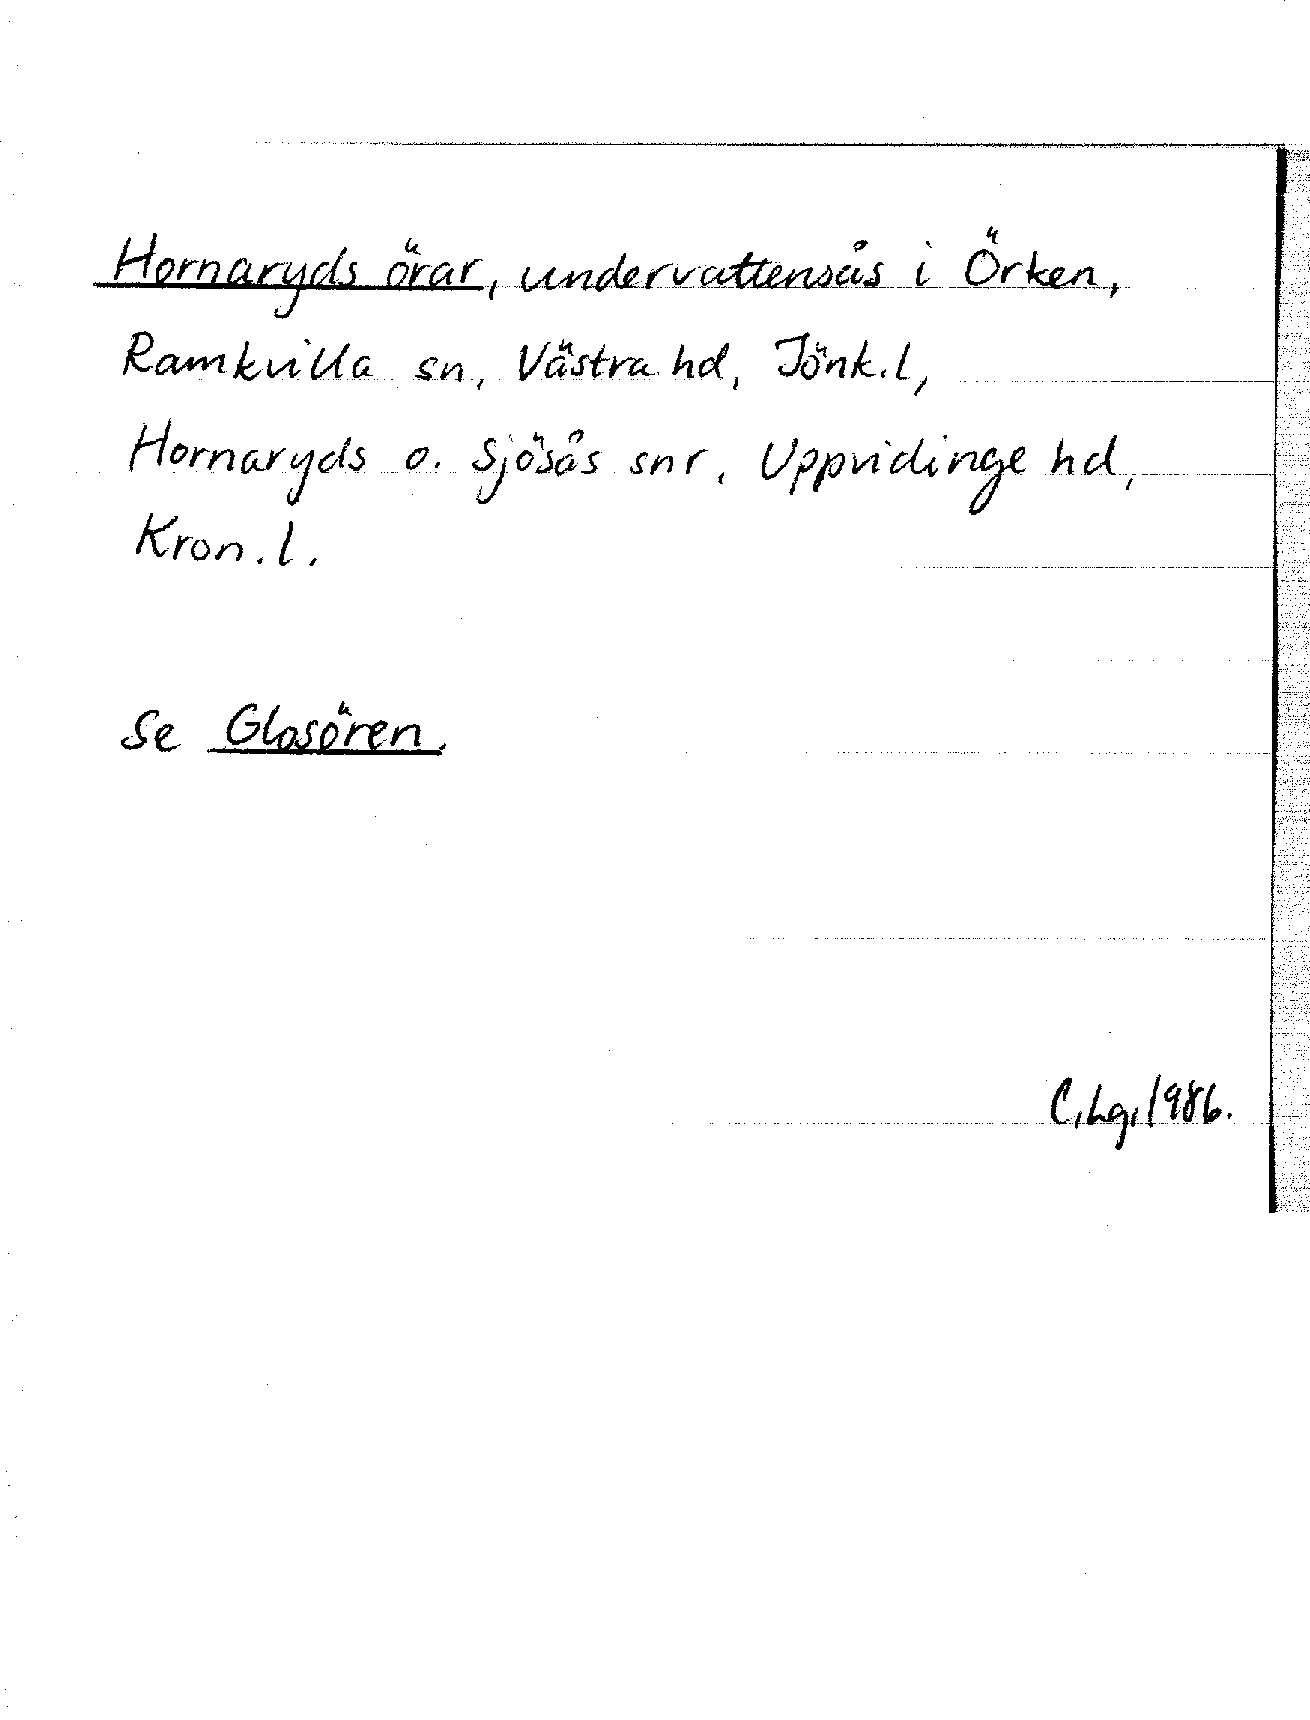 Hornaryds örar, undervattensås i Örken,
Ramkvilla sn, Västra hd, Jönk.l,
Hornaryds o. Sjösås snr, Uppvidinge hd,
Kron.l.
Se Glosören.
C.Lg.1986.